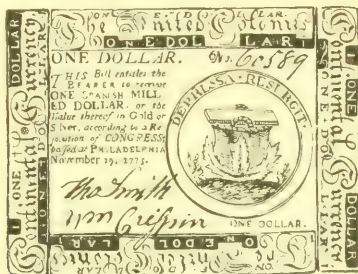 ONE DOLLAR.
The United Colonies
ONE DOLLAR
ONE DOLLAR. No. 60589
THIS Bill entitles the
BEARER to receive
ONE SPANISH MILL-
ED DOLLAR, or the
Value thereof in Gold or
Silver, according to a Re-
solution of CONGRESS,
passed at PHILADELPHIA
November 29, 1775.
DEPRESSA RESURGIT.
Tho Smith
Wm Crispin
ONE DOLLAR.
Continental Currency
ONE DOLLAR
Continental
ONE DOLLAR
ONE DOLLAR